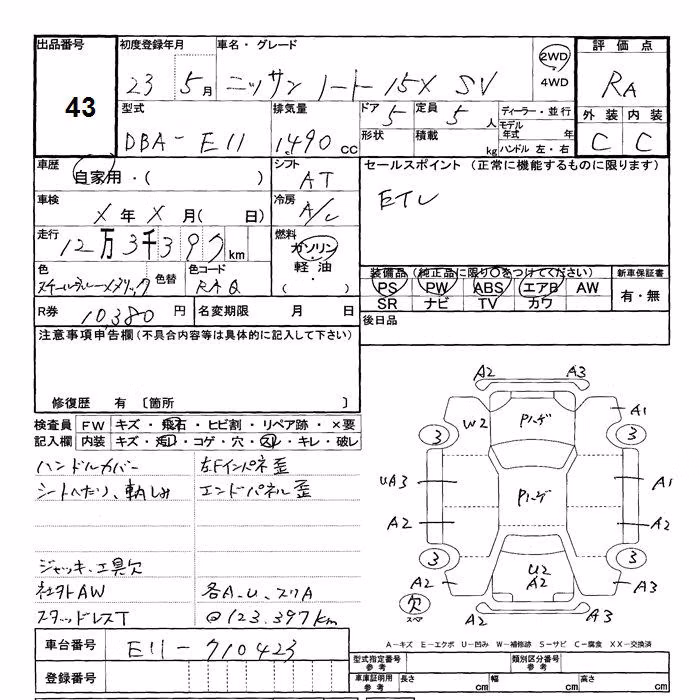 出品番号
43
初度登録年月
23 5月
車名・グレード
ニッサン ノート 15X SV
2WD
4WD
評価点
RA
外装 内装
C C
型式
DBA-E11
排気量
1,490 cc
ドア
5
定員
5 人
形状
積載
kg
ディーラー・並行
モデル年式 年
ハンドル 左・右
車歴
自家用・( )
シフト
AT
セールスポイント (正常に機能するものに限ります)
ETC
車検
X 年 X 月( 日)
冷房
A/C
走行
12万3千397 km
燃料
ガソリン
軽油
・( )
色
スチールグレーメタリック
色替
色コード
RAQ
装備品(純正品に限り○をつけてください)
PS PW ABS エアB AW
SR ナビ TV カワ
新車保証書
有・無
R券 10,380 円
名変期限 月 日
後日品
注意事項申告欄(不具合内容等は具体的に記入して下さい)
修復歴 有 〔箇所 〕
検査員記入欄
FW キズ・飛石・ヒビ割・リペア跡・×要
内装 キズ・汚れ・コゲ・穴・スレ・キレ・破レ
ハンドルカバー 左Fインパネ歪
シートへたり、軋しみ エンドパネル歪
ジャッキ、工具欠
社外AW 各A.U.スリA
スタッドレスT @123.397km
A2 A3
W2 Pハーゲ A1
3 3
UA3 Pハーゲ A1
A2 A2
3 3
A2 U2 A2 A3
欠 スペア A2 A3
A-キズ E-エクボ U-凹み W-補修跡 S-サビ C-腐食 XX-交換済
車台番号 E11-710423
登録番号
型式指定番号 参考
類別区分番号 参考
車庫証明用 参考
長さ cm
幅 cm
高さ cm